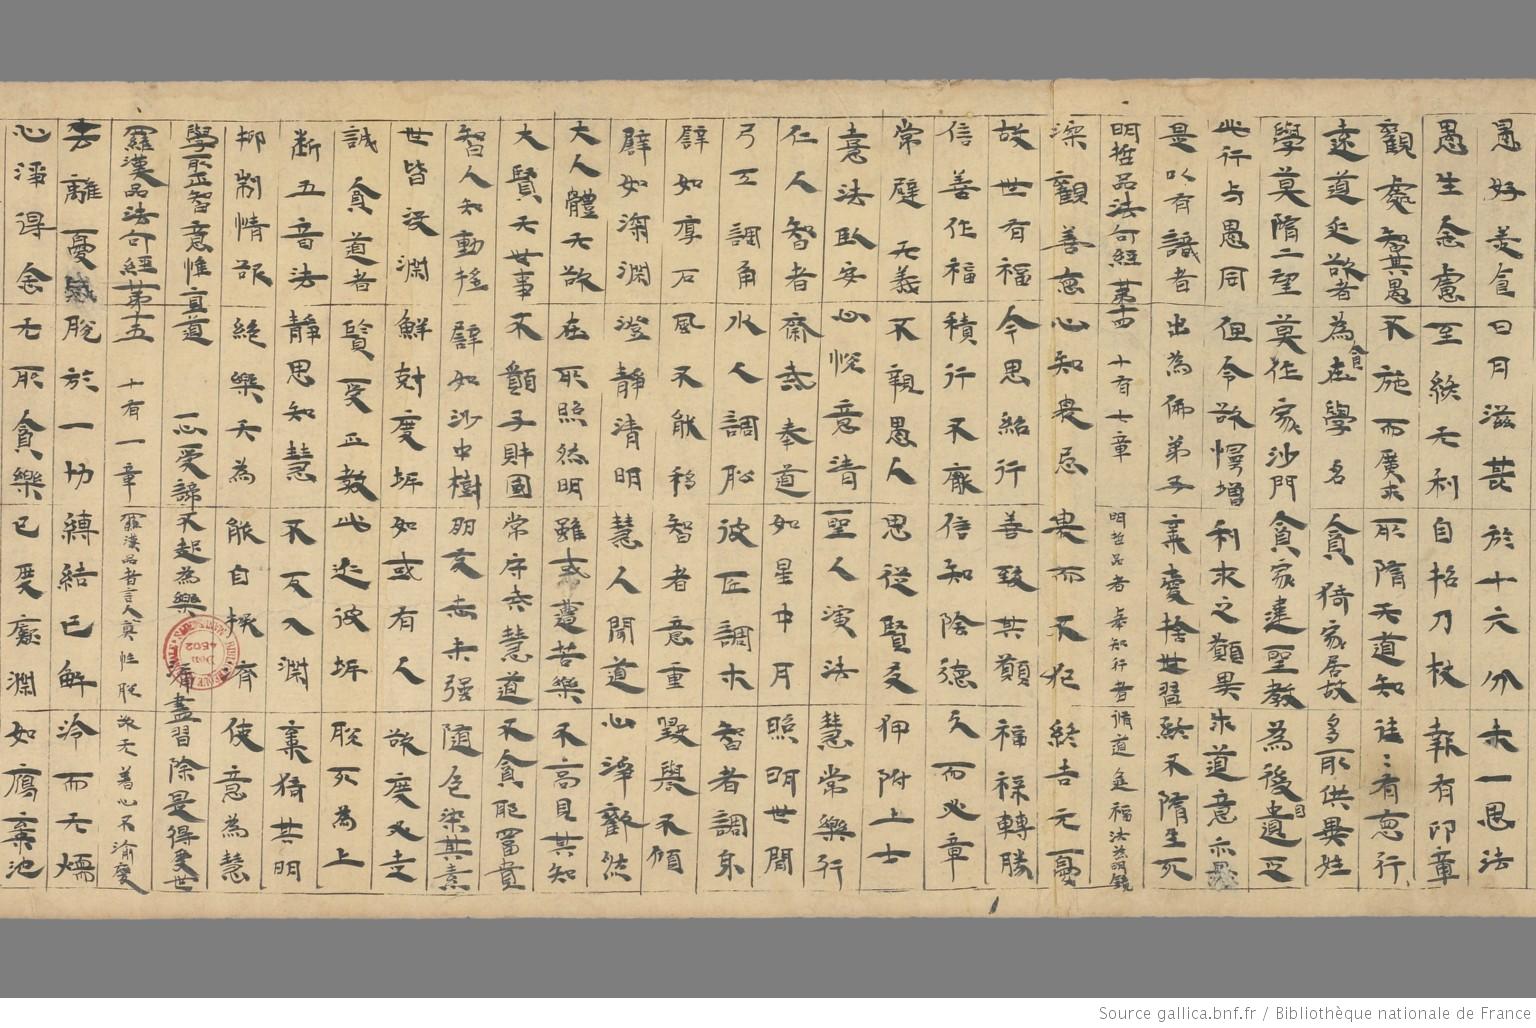 愚好美食 日月滋甚 於十六分 未一思法
愚生念慮 至終无利 自招刀杖 報有印章
觀處智其愚 不施而廣求 所隋无道知 往〻有惡行
遠道近欲者 為貪在學名 貪猗家居故 多取供異姓
學莫隋二望 莫作家沙門 貪家違聖教 為後自遺乏
此行与愚同 但令欲慢增 利求之願異 求道意亦異
是以有識者 出為佛弟子 棄愛捨世習 終不隋生死
明哲品法句經第十四 十有七章 明哲品者 舉知行者 脩道進福 法為明鏡
深觀善惡 心知畏忌 畏而不犯 終吉无憂
故世有福 今思紹行 善致其願 福祿轉勝
信善作福 積行不厭 信知陰德 久而必章
常避无義 不親愚人 思從賢友 狎附上士
意法臥安 心悅意清 聖人演法 慧常樂行
仁人智者 齋戒奉道 如星中月 照明世間
弓工調角 水人調船 彼匠調木 智者調身
譬如厚石 風不能移 智者意重 毀譽不傾
譬如深淵 澄靜清明 慧人聞道 心淨歡然
大人體无欲 在所照然明 雖或遭苦樂 不高見其知
大賢无世事 不願子財國 常守戒慧道 不貪耶富貴
智人知動搖 譬如沙中樹 朋友志未强 隨色染其素
世皆没淵 鮮剋度坻 如或有人 欲度必走
誠貪道者 賢受正教 此近彼坻 脫死為上
斷五音法 靜思知慧 不反入淵 棄猗其明
抑制情欲 絕樂无為 能自拯濟 使意為慧
學取正智意惟直道 一心受諦不起為樂 痛盡習除是得度世
羅漢品法句經第十五 十有一章 羅漢品者 言人真性 脫欲无著 心不渝變
去離憂慼 脫於一切 縛結已解 冷而无煗
心淨得念 无所貪樂 已度癡淵 如鴈棄池
DON 4502
Source gallica.bnf.fr / Bibliothèque nationale de France